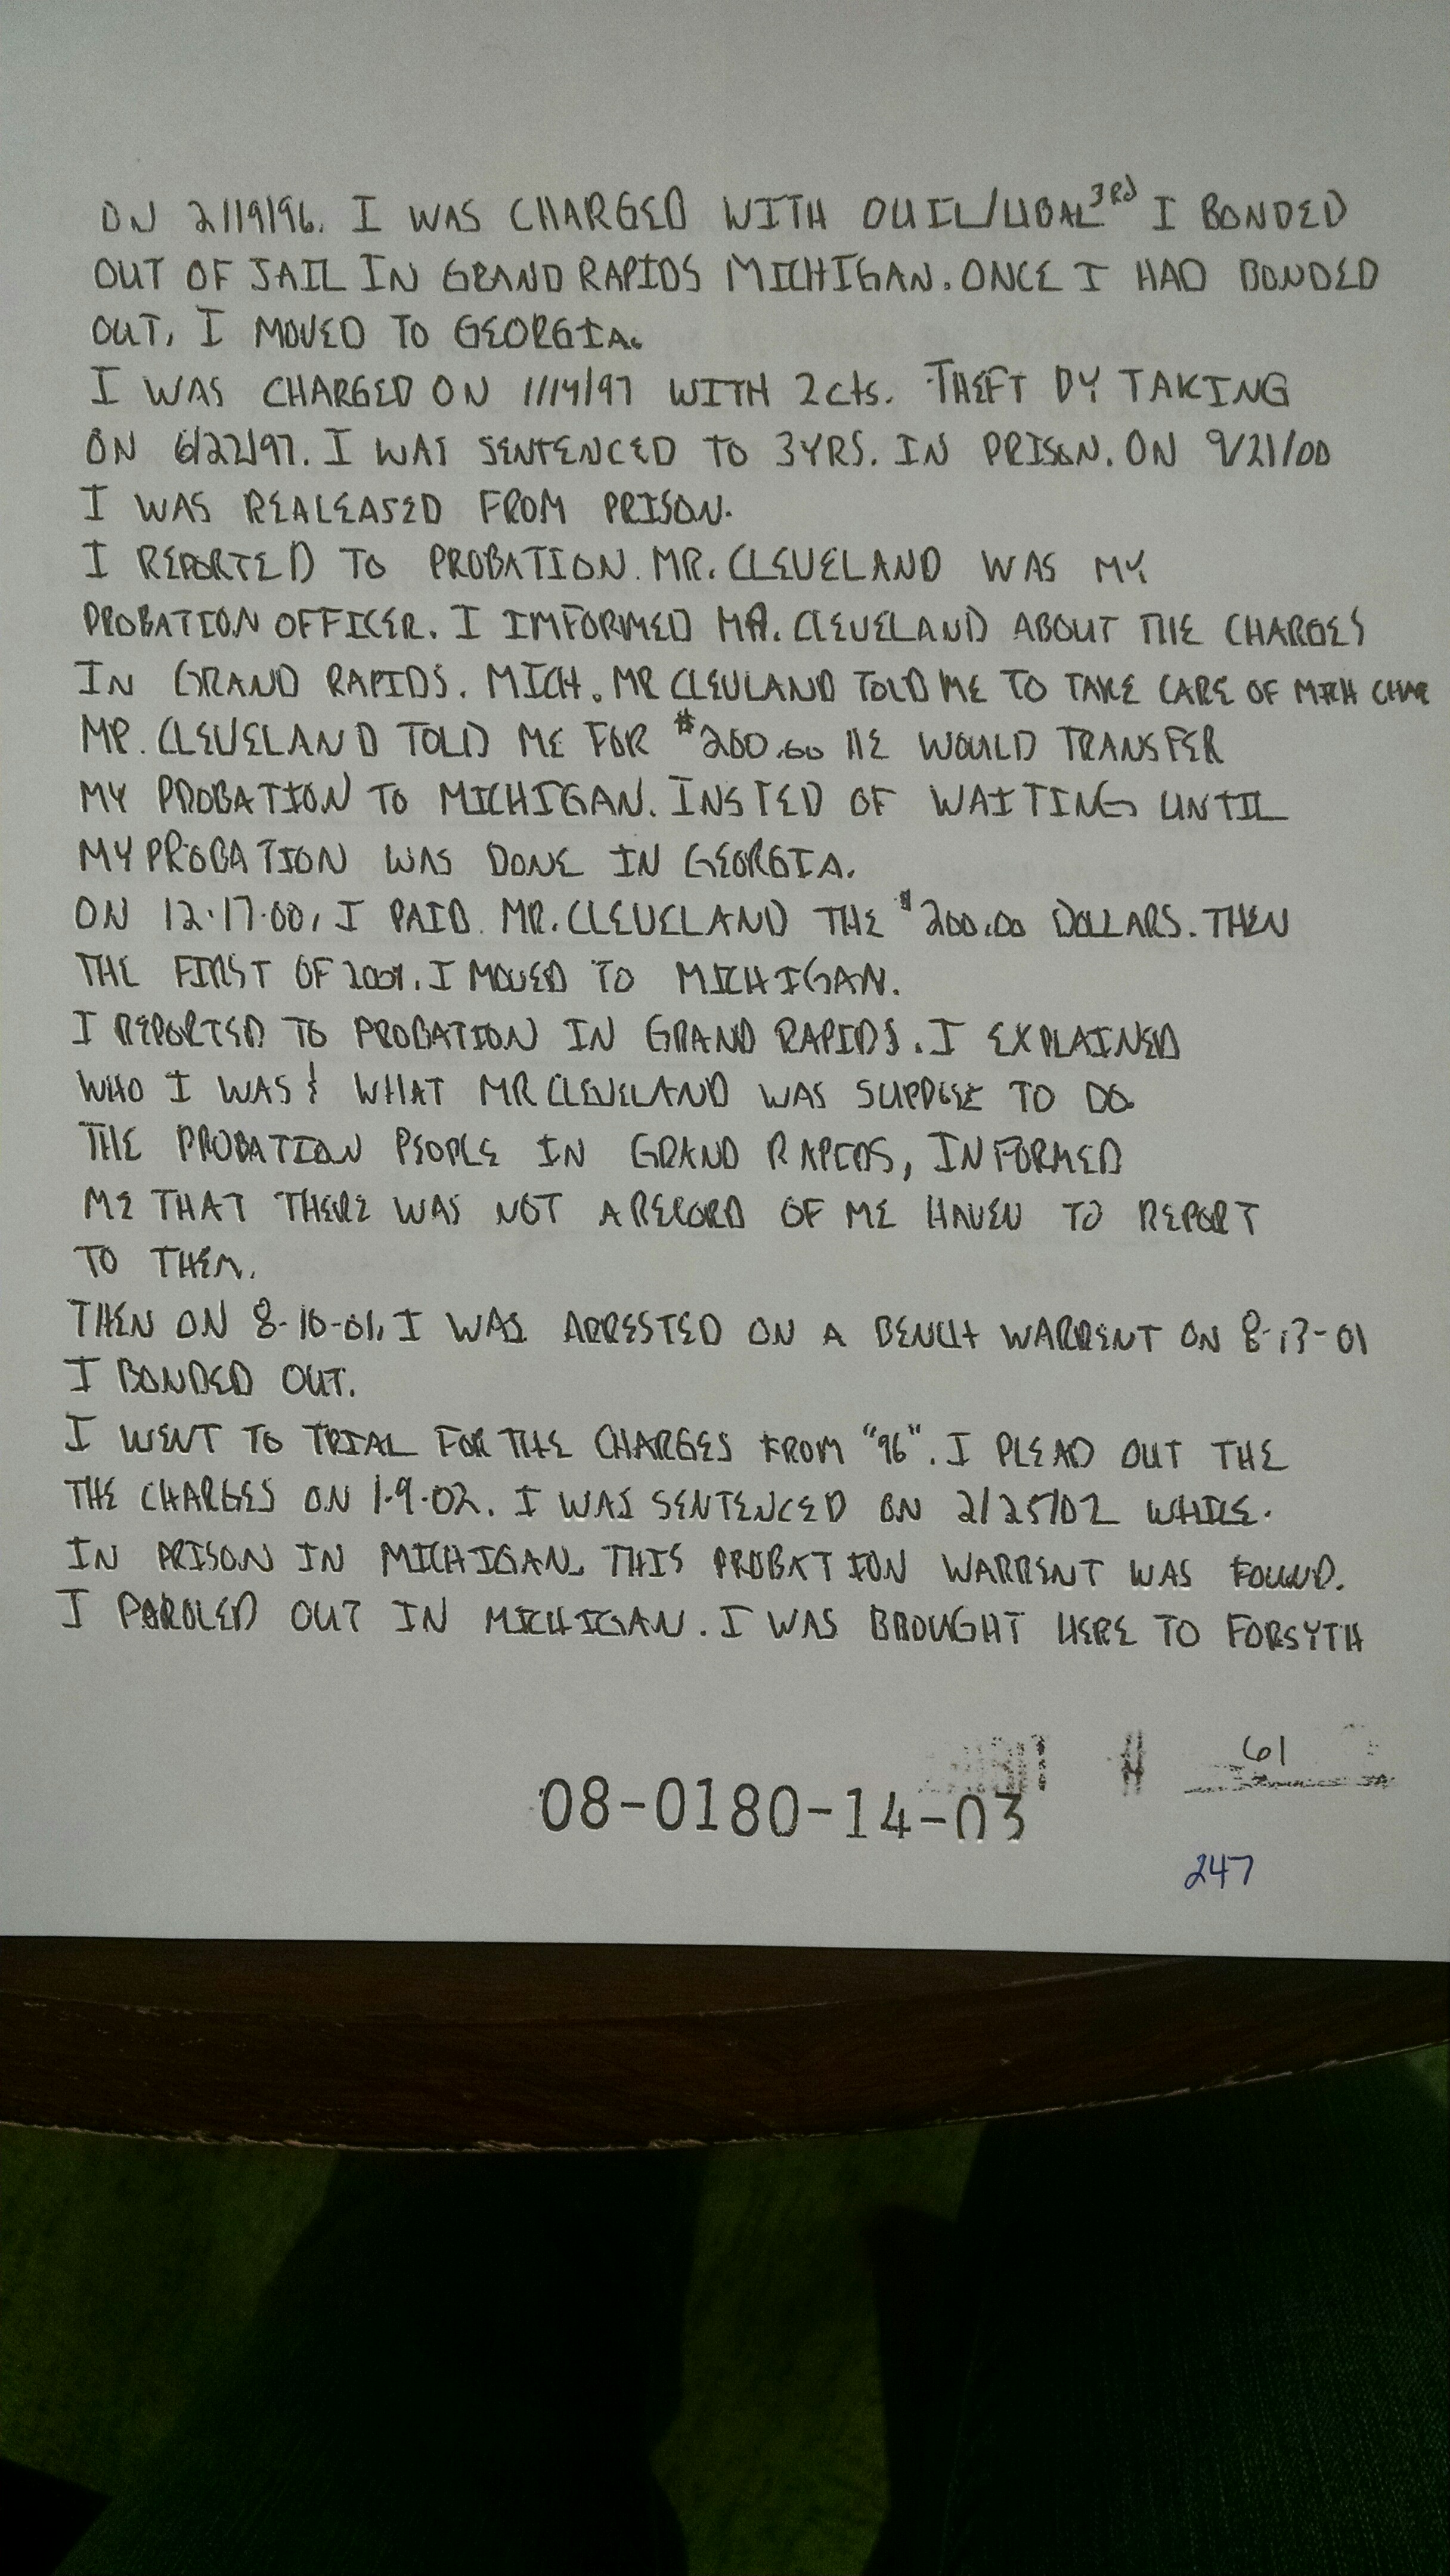 ON 2/19/96. I WAS CHARGED WITH OUIL/UBAL 3RD I BONDED
OUT OF JAIL IN GRAND RAPIDS MICHIGAN. ONCE I HAD BONDED
OUT, I MOVED TO GEORGIA.
I WAS CHARGED ON 1/14/97 WITH 2 cts. THEFT BY TAKING
ON 6/22/97. I WAS SENTENCED TO 3YRS. IN PRISON. ON 9/21/00
I WAS REALEASED FROM PRISON.
I REPORTED TO PROBATION. MR. CLEVELAND WAS MY
PROBATION OFFICER. I IMFORMED MR. CLEVELAND ABOUT THE CHARGES
IN GRAND RAPIDS. MICH. MR CLEVLAND TOLD ME TO TAKE CARE OF MICH CHAR
MR. CLEVELAND TOLD ME FOR $200.00 HE WOULD TRANSFER
MY PROBATION TO MICHIGAN. INSTED OF WAITING UNTIL
MY PROBATION WAS DONE IN GEORGIA.
ON 12.17.00, I PAID MR. CLEVELAND THE $200.00 DOLLARS. THEN
THE FIRST OF 2001. I MOVED TO MICHIGAN.
I REPORTED TO PROBATION IN GRAND RAPIDS. I EXPLAINED
WHO I WAS & WHAT MR CLEVELAND WAS SUPPOSE TO DO
THE PROBATION PEOPLE IN GRAND RAPIDS, INFORMED
ME THAT THERE WAS NOT A RECORD OF ME HAVEN TO REPORT
TO THEM.
THEN ON 8-10-01, I WAS ARRESTED ON A BENCH WARRENT ON 8-13-01
I BONDED OUT.
I WENT TO TRIAL FOR THE CHARGES FROM "96". I PLEAD OUT THE
THE CHARGES ON 1.9.02. I WAS SENTENCED ON 2/25/02 WHILE.
IN PRISON IN MICHIGAN. THIS PROBATION WARRENT WAS FOUND.
I PAROLED OUT IN MICHIGAN. I WAS BROUGHT HERE TO FORSYTH
# 61
08-0180-14-03
247